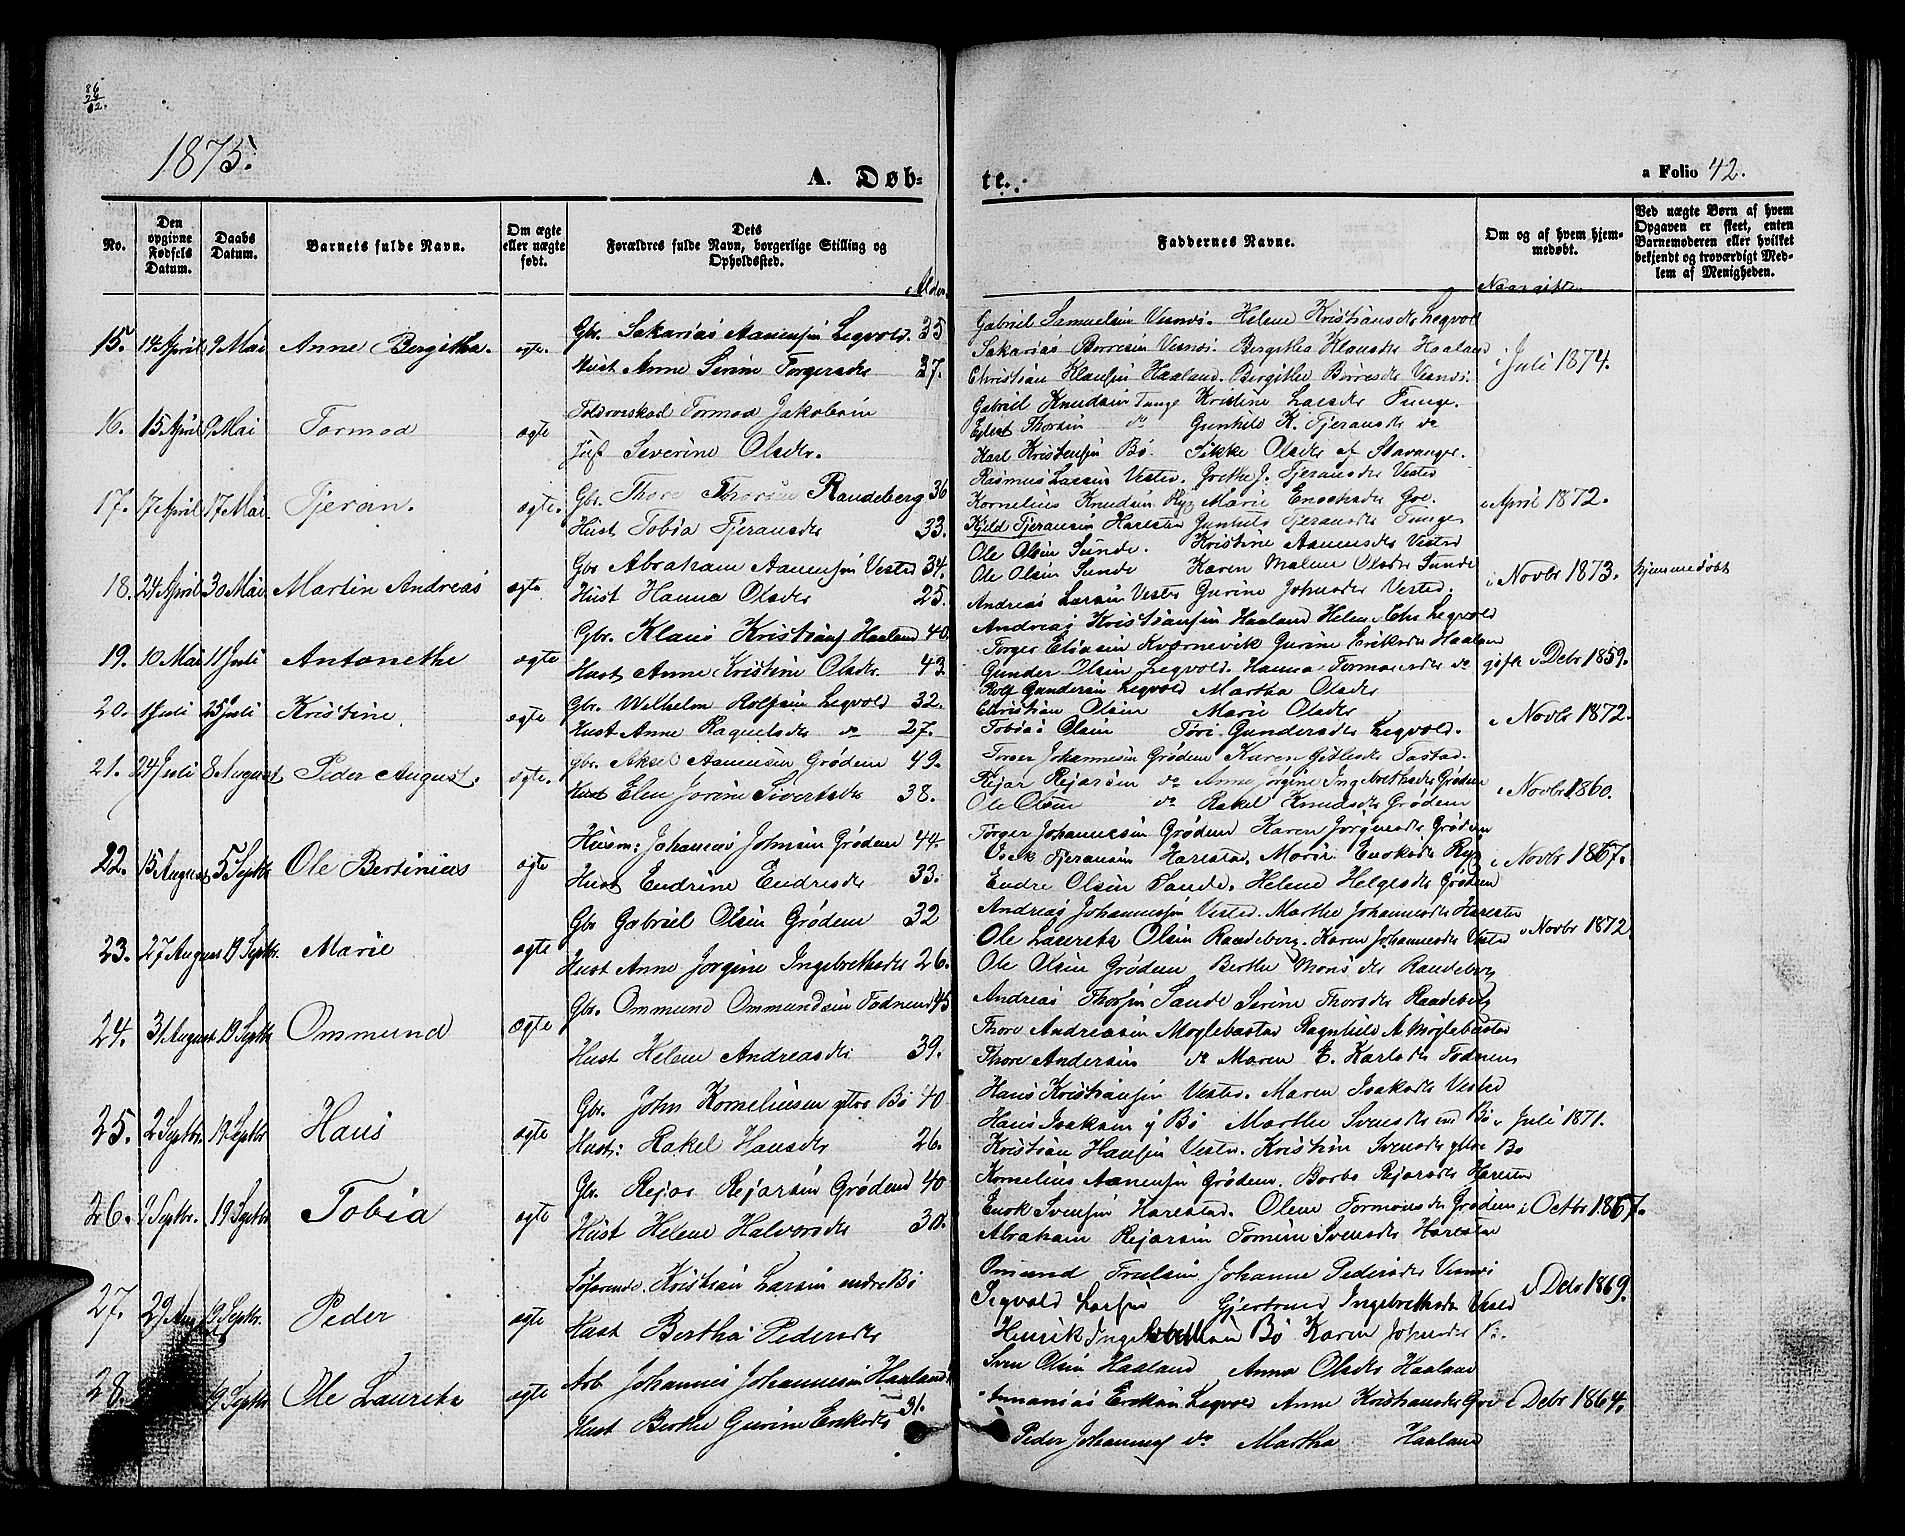 1875.
A. Døb-
te.
a Folio 42.
No.
Den opgivne Fødsels Datum.
Daabs Datum.
Barnets fulde Navn.
Om ægte eller uægte født.
Dets Forældres fulde Navn, borgerlige Stilling og Opholdssted.
Alder
Faddernes Navne.
Om og af hvem hjemmedøbt.
Naar gift
Ved uægte Børn af hvem Opgaven er skeet, enten Barnemoderen eller hvilket bekjendt og troværdigt Medlem af Menigheden.
15. 14 April 9 Mai Anne Bergitha. ægte
Gbr. Sakarias Aanensen Legvold. 35
Hust Anne Serine Torgersdr 37.
Gabriel Samuelsen Vesnes. Helene Kristiansdr Legvol
Sakarias Børresen Vesnes. Bergitha Klausdr Haaland
Christian Klausen Haaland. Bergithe Børresdr Vesnes.
i Juli 1874.
16. 15 April 9 Mai Tormod ægte
Toldroerskarl Tormod Jakobsen
Severine Olsdr.
Gabriel Knudsen Tunge Kristine Larsdr Tunge.
Eylert Thorsen do Gunhild K. Tjeransdr do
Karl Kristensen Bø. Sikke Olsdr af Stavanger.
17. 17 April 17 Mai Tjeran. ægte.
Gbr. Thore Thorsen Randeberg 36
Hust Tobia Tjeransdr 33.
Rasmus Larsen Vested. Grethe J. Tjeransdr Vested
Kornelius Knudsen Ryg Marie Enochsdr Goe.
Kjeld Tjeransen Harestad Gunhild Tjeransdr Tunge
i April 1872.
18. 24 April 30 Mai Martin Andreas ægte
Gbr Abraham Aanensen Vested 34.
Hust Hanna Olsdr 25.
Ole Olsen Sunde. Kristine Aanensdr Vested
Ole Olsen Sunde Karen Malene Olsdr Sunde
Andreas Larsen Vested Gurine Johnsdr Vested.
i Novbr 1873. hjemmedøbt
19. 10 Mai 11 Juli Antonethe ægte
Gbr. Klaus Kristians Haaland 40.
Hust Anne Kristine Olsdr 43.
Andreas Kristiansen Haaland Helene Chr Legvold
Torger Eliasen Kvernevik Gurine Eriksdr Haaland
Gunder Olsen Legvold. Hanna Tormodsdr do
gift i Debr 1859.
20. 1 Juli 25 Juli Kristine ægte
Gbr. Wilhelm Rolfsen Legvold 32.
Hust Anne Raguelsdr do 27.
Rolf Gundersen Legvold Martha Olsdr
Christian Olsen Marie Olsdr
Tobias Olsen Tori Gundersdr Legvold.
i Novbr 1872.
21. 24 Juli 8 August Peder August. ægte.
Gbr. Aksel Aanensen Grødem 49.
Hust Elen Jorine Sivertsdr 38.
Torger Johannesen Grødem Karen Gitlesdr Tastad.
Rejar Rejarsen do Anne Jørgine Ingebrethsdr Grødem
Ole Olsen do Rakel Knudsdr Grødem
i Novbr 1860.
22. 15 August 5 Septbr Ole Bertinius ægte
Huusm: Johannes Johnsen Grødem 44.
Hust Endrine Endresdr 33.
Torger Johannesen Grødem Karen Jørgensdr Grødem
Tjeransen Harestad. Marie Enoksdr Ryg
Endre Olsen Sande. Helene Helgesdr Grødem
i Novbr 1867.
23. 27 August 19 Septbr. Marie ægte
Gbr Gabriel Olsen Grødem 32
Hust Anne Jorgine Ingebrethsdr 26.
Andreas Johannessen Vested. Marthe Johannesdr Harestad
Ole Lauretz Olsen Randeberg. Karen Johannesdr Vested
Ole Olsen Grødem Berthe Monsdr Randeberg
i Novbr 1872.
24. 31 August 19 Septbr Ommund ægte
Gbr. Ommund Ommundsen Todnem 45
Hust Helene Andreasdr 39.
Andreas Thorsen Sande Serine Thorsdr Randeberg
Thore Andreasen Moglebustad Ragnhild A. Moglebustad
Thore Andersen do Maren E. Karlsdr Todnem
25. 2 Septbr. 19 Septbr Hans ægte
Gbr. John Korneliusen ytre Bø 40
Hust: Rakel Hansdr 26.
Hans Kristiansen Vested. Maren Isaksdr Vested
Hans Isaksen y Bø Marthe Svensdr Bø
Kristian Hansen Vested. Kristine Svensdr ytre Bø
i Juli 1871.
26. 9 Septbr. 19 Septbr. Tobia ægte
Gbr. Rejar Rejarsen Grødem 40
Hust Helene Halvorsdr 30.
Kornelius Aanensen Grødem. Borbo Rejarsdr Harestad
Enok Svensen Harestad. Olene Tormodsdr Grødem
Abraham Rejarsen Tomine Svensdr Harestad
i Octbr 1867.
27. 29 Aug 19 Septbr. Peder ægte
Søfarende. Kristian Larsen indre Bø
Hust Bertha Pedersdr
Omund Truelsen Johanne Pedersdr Vesnes
Segvald Larsen Gjertrud Ingebrethsdr Vested
Henrik Bø Karen Johnsdr
i Debr 1869.
28. 19 Septbr Ole Lauretz ægte
Arb. Johannes Johannesen Haaland
Hust Berthe Gurine Eriksdr 31.
Sven Olsen Haaland Anna Olsdr Haaland
Ananias Eriksen Legvold Anne Kristiansdr Goe
Peder Johannes do Martha Haaland
i Debr 1864.